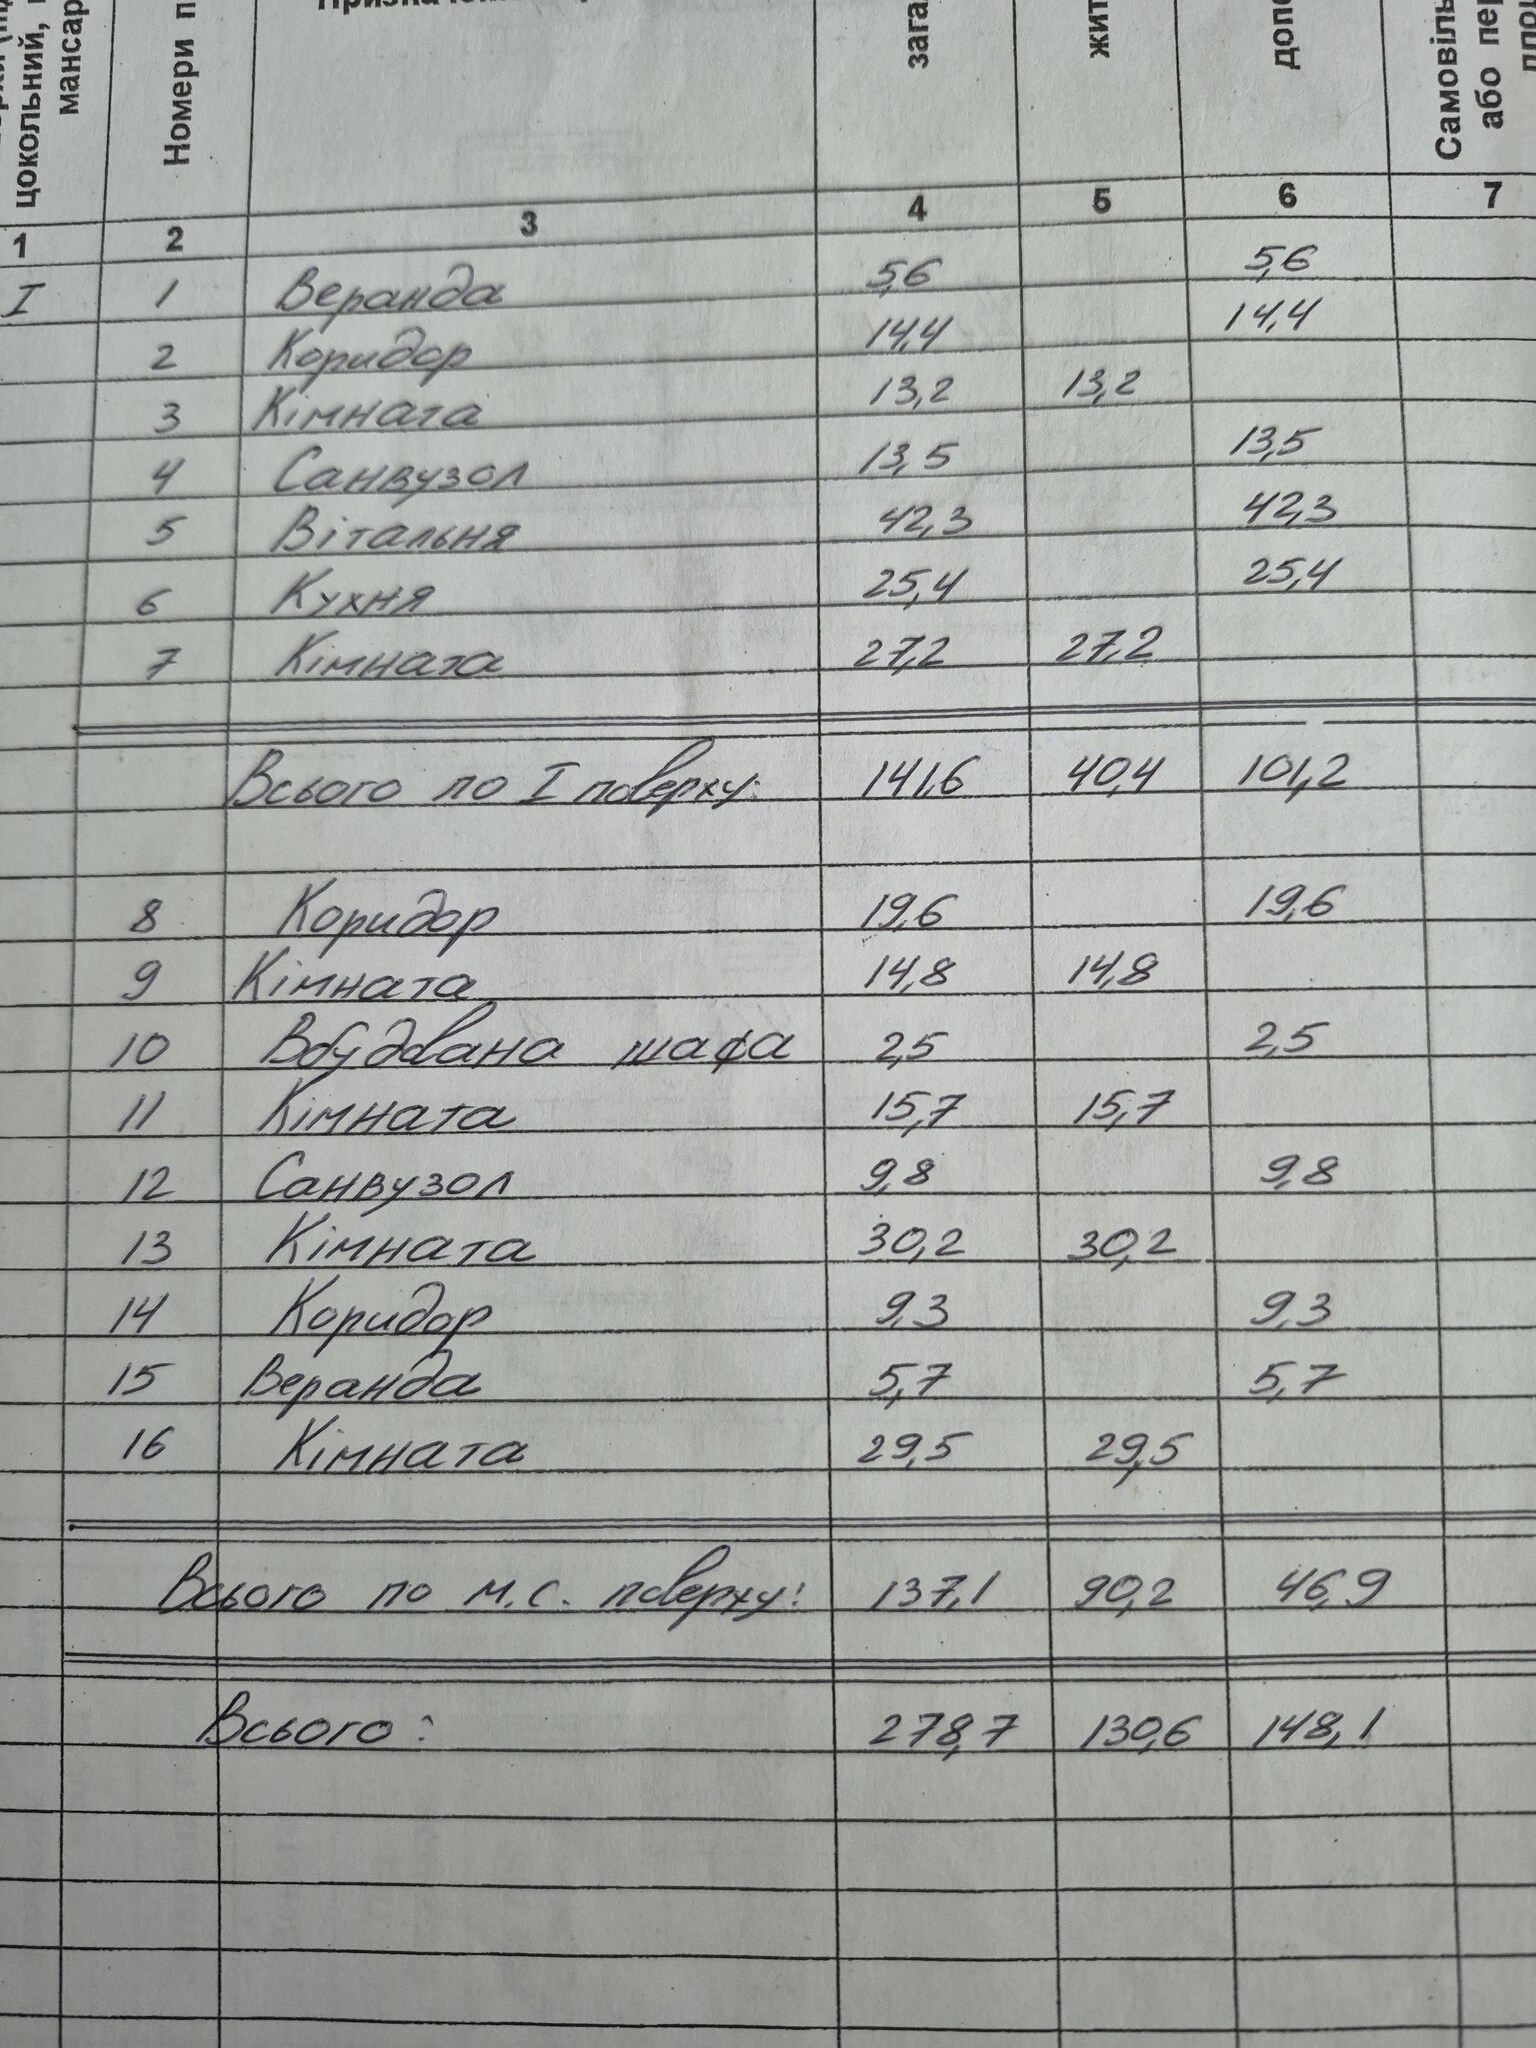 цокольний,
мансар
Номери п
зага
жит
допо
Самовіль
або пер
площ
1 2 3 4 5 6 7
I 1 Веранда 5,6 5,6
2 Коридор 14,4 14,4
3 Кімната 13,2 13,2
4 Санвузол 13,5 13,5
5 Вітальня 42,3 42,3
6 Кухня 25,4 25,4
7 Кімната 27,2 27,2
Всього по I поверху: 141,6 40,4 101,2
8 Коридор 19,6 19,6
9 Кімната 14,8 14,8
10 Вбудована шафа 2,5 2,5
11 Кімната 15,7 15,7
12 Санвузол 9,8 9,8
13 Кімната 30,2 30,2
14 Коридор 9,3 9,3
15 Веранда 5,7 5,7
16 Кімната 29,5 29,5
Всього по м.с. поверху: 137,1 90,2 46,9
Всього: 278,7 130,6 148,1